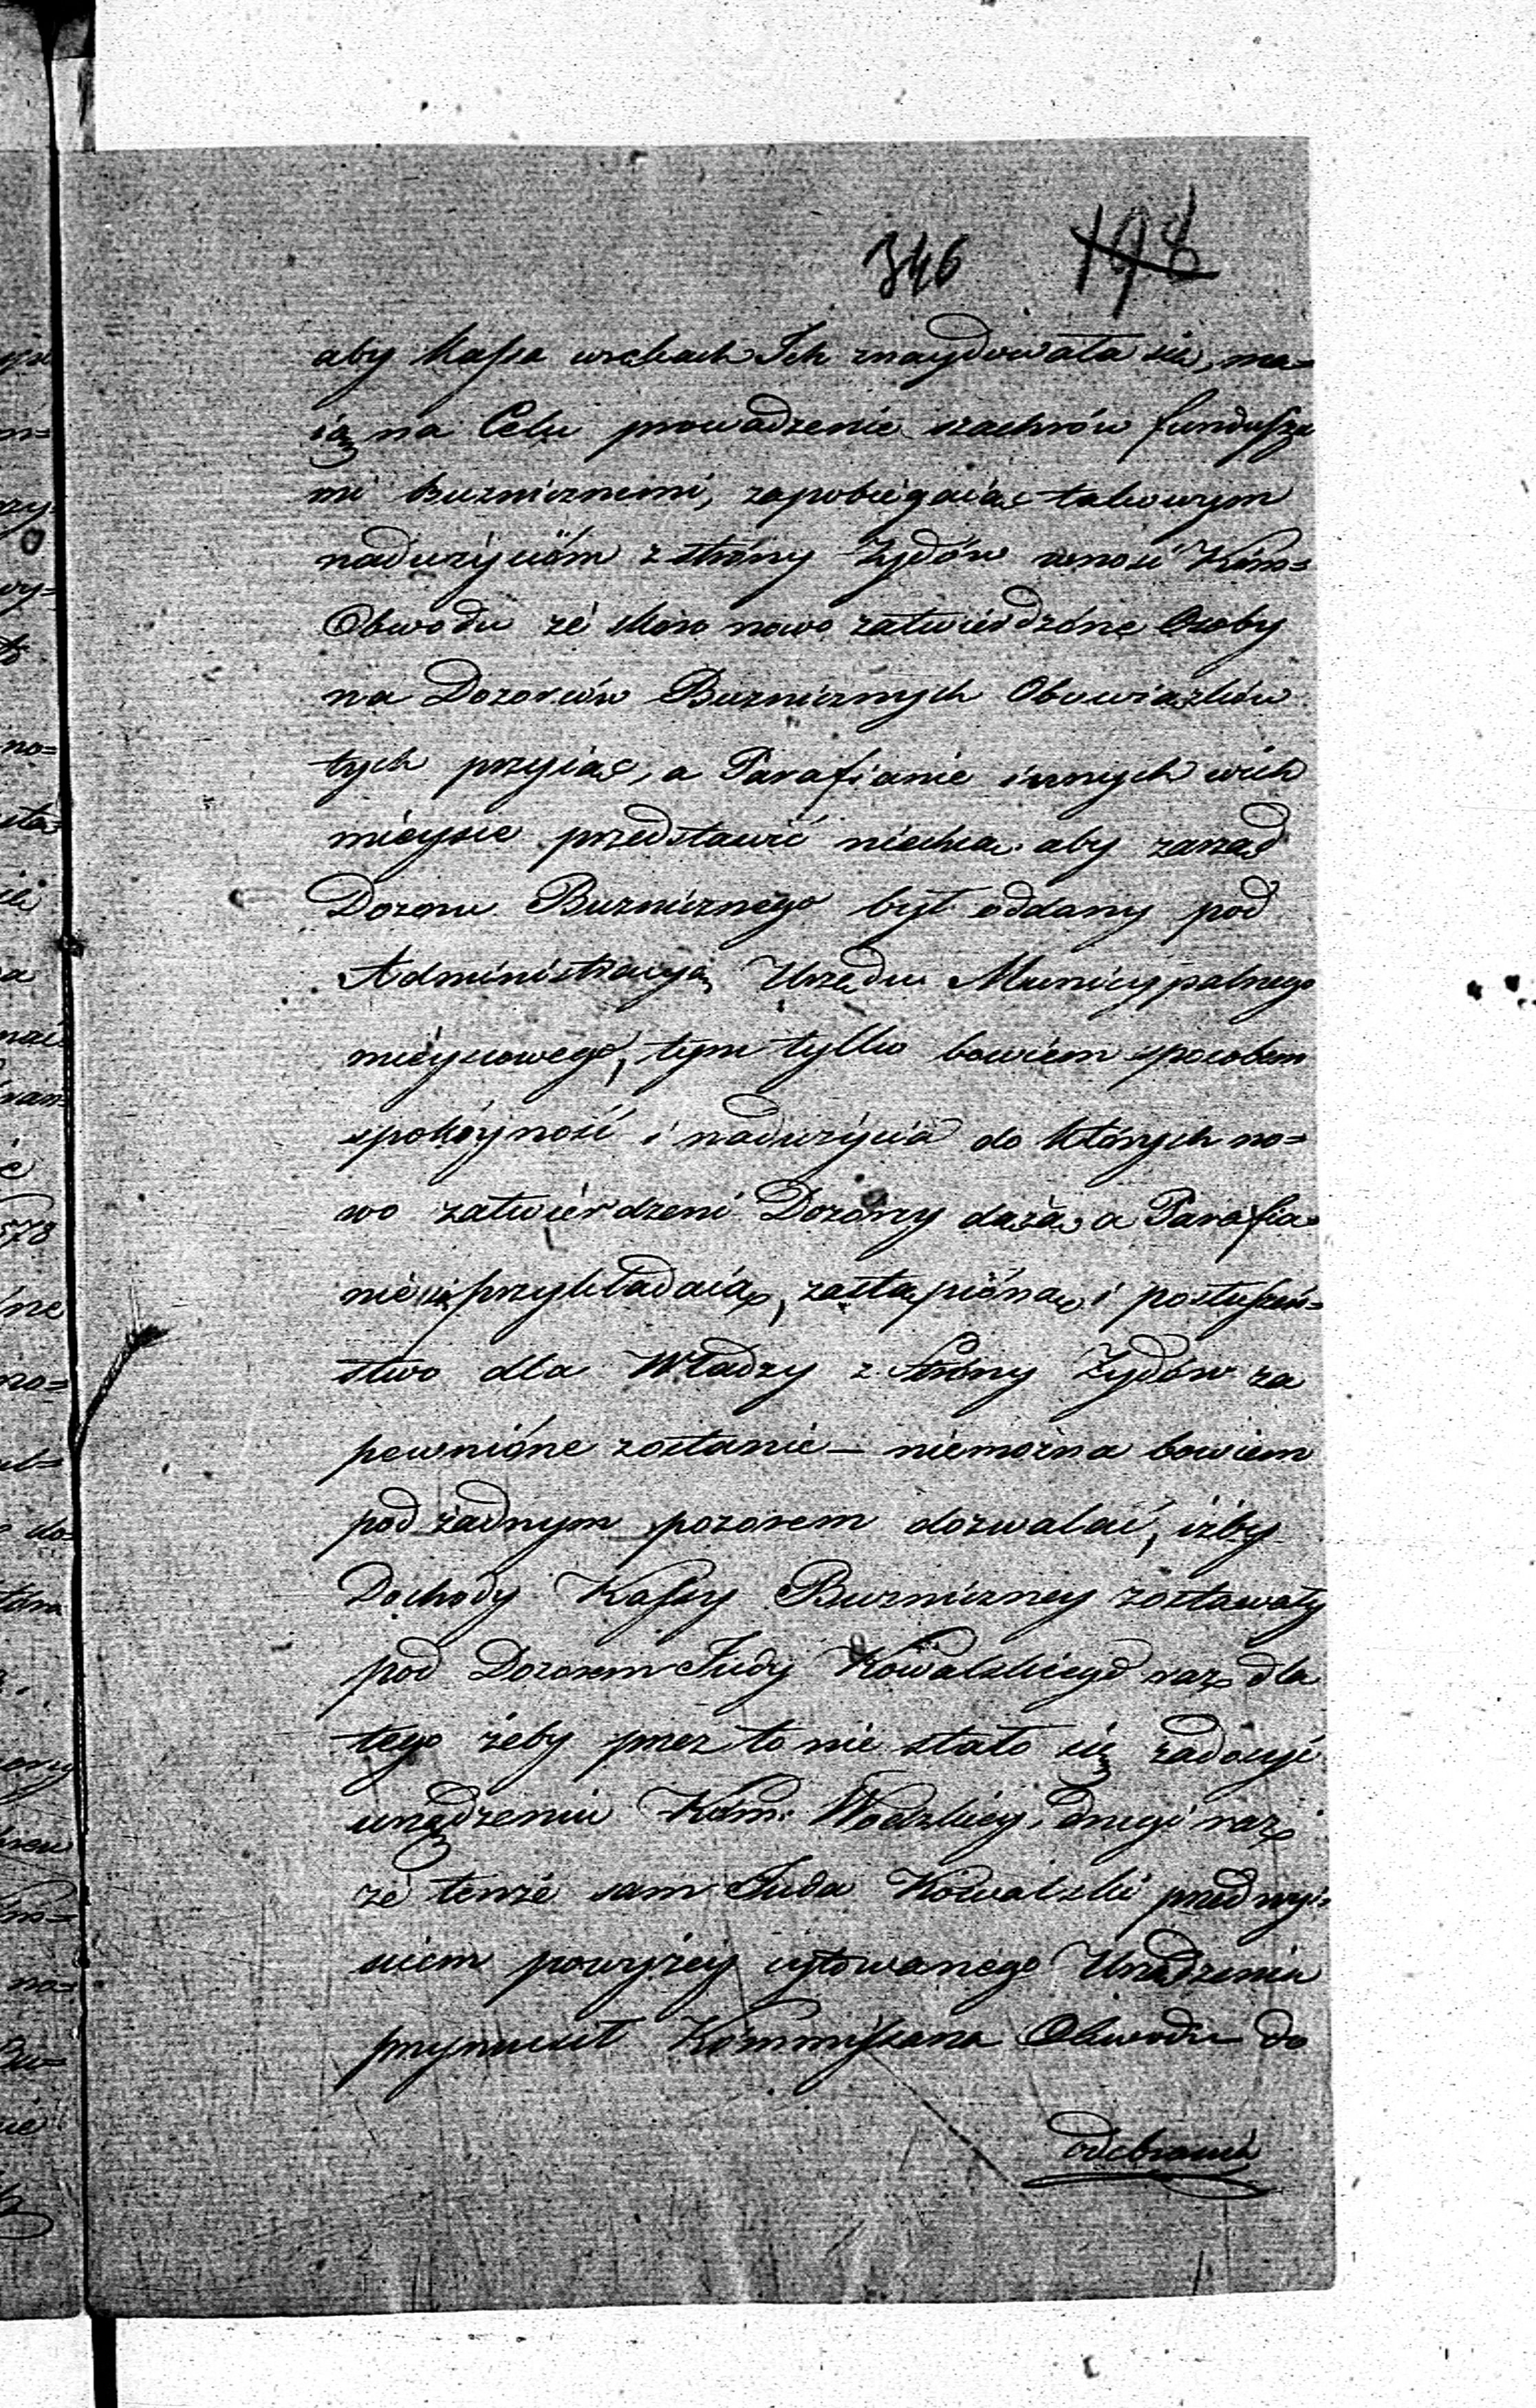 346 198
aby Kassa w rękach Ich znaydowała się, ma=
ią na Celu prowadzenie szachrów fundusza
mi Buzniczniemi, zapobiegaiąc takowym
nadużyciom z strony Żydów wnosi Kom=
Obwodu że skoro nowo zatwierdzone Osoby
na Dozorców Buznicznych Obowiązków
tych przyiąć, a Parafianie innych w ich
mieysce przedstawić niechcą aby zarząd
Dozoru Buznicznego był oddany pod
Administracyą Urzędu Municypalnego
mieyscowego, tym tylko bowiem sposobem
spokóyność i nadużycia do których no=
wo zatwierdzeni Dozorcy dążą a Parafia
nie się przykładaią, zastąpioną i posłuszeń=
stwo dla Władzy z Strony Żydów za
pewnione zostanie – niemożna bowiem
pod żadnym pozorem dozwalać, iżby
Dochody Kassy Buzniczney zostawały
pod Dozorem Judy Kowalskiego raz dla
tego żeby przez to nie stało się zadosyć
urządzeniu Kom: Wodzkiey, drugi raz
że tenże sam Juda Kowalski przed wyi=
ściem powyżey cytowanego Urządzenia
przymusił Kommissarza Obwodu do
odebrania